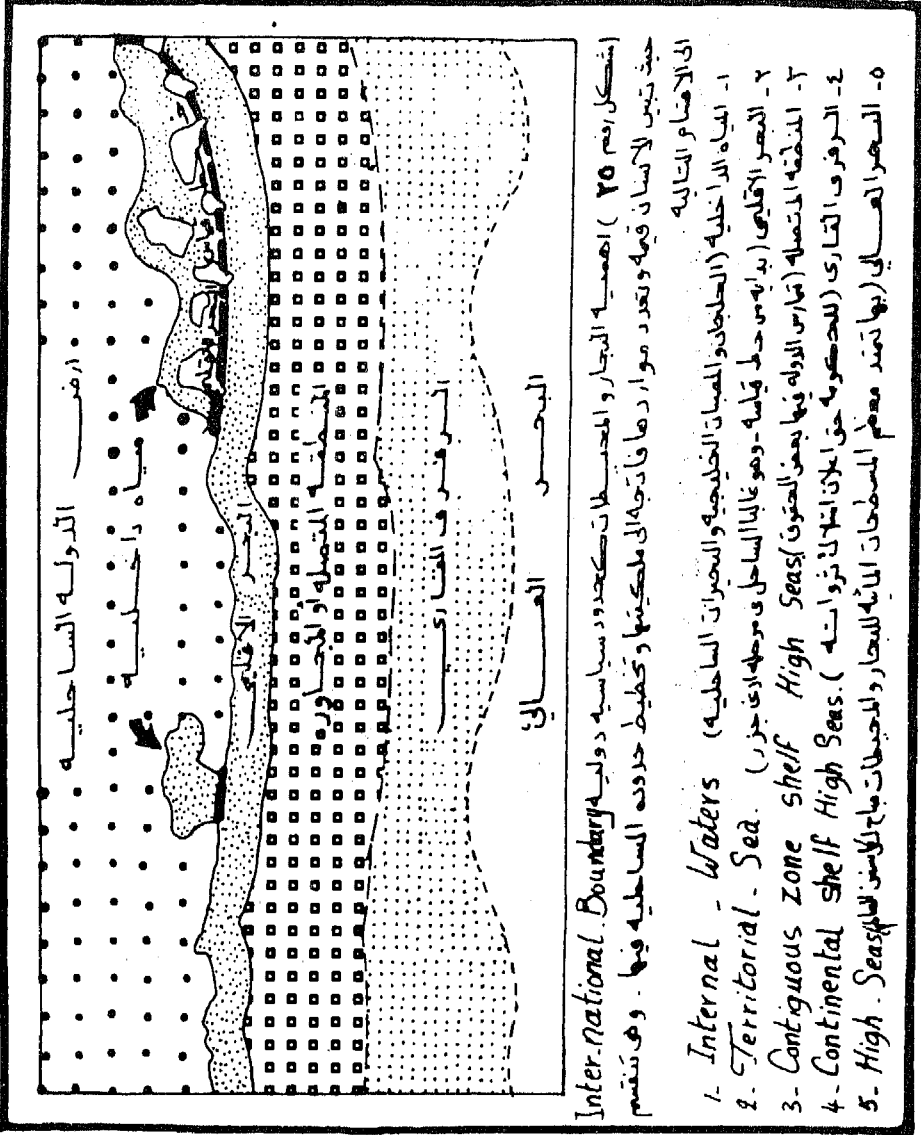 ارض الدولة الساحلية
مياه داخلية
خط قياس الاقليمي
البحر الاقليمي
المنطقه المتصله أو المجاوره
الرفرف القاري
البحر العالي
شكل رقم ٢٥ ) اهمية البحار والمحيطات كحدود سياسية دولية International Boundary
حيث تبين الانسان قيمة وتعدد مواردها فاتجه الى ملكيتها وتخطيط حدوده الساحلية فيها . وهى تنقسم
الى الاقسام التالية
١- المياه الداخلية (الخلجان والمصبات الخليجية والبحيرات الساحلية) 1- Internal - Waters
٢- البحر الاقليمى (بداية من خط قياسة - وهو غالبا الساحل فى مرحلة ادنى جزر) 2- Territorial - Sea.
٣- المنطقه المتصلة (تمارس الدولة فيها بعض الحقوق) 3- Contiguous zone shelf High Seas
٤- الرفرف القارى (للحكومة حق اعلان امتلاك ثرواته ) 4- Continental shelf High Seas.
٥- البحر العالى (بها تمتد معظم المسطحات المائيه للبحار والمحيطات 5- High - Seas